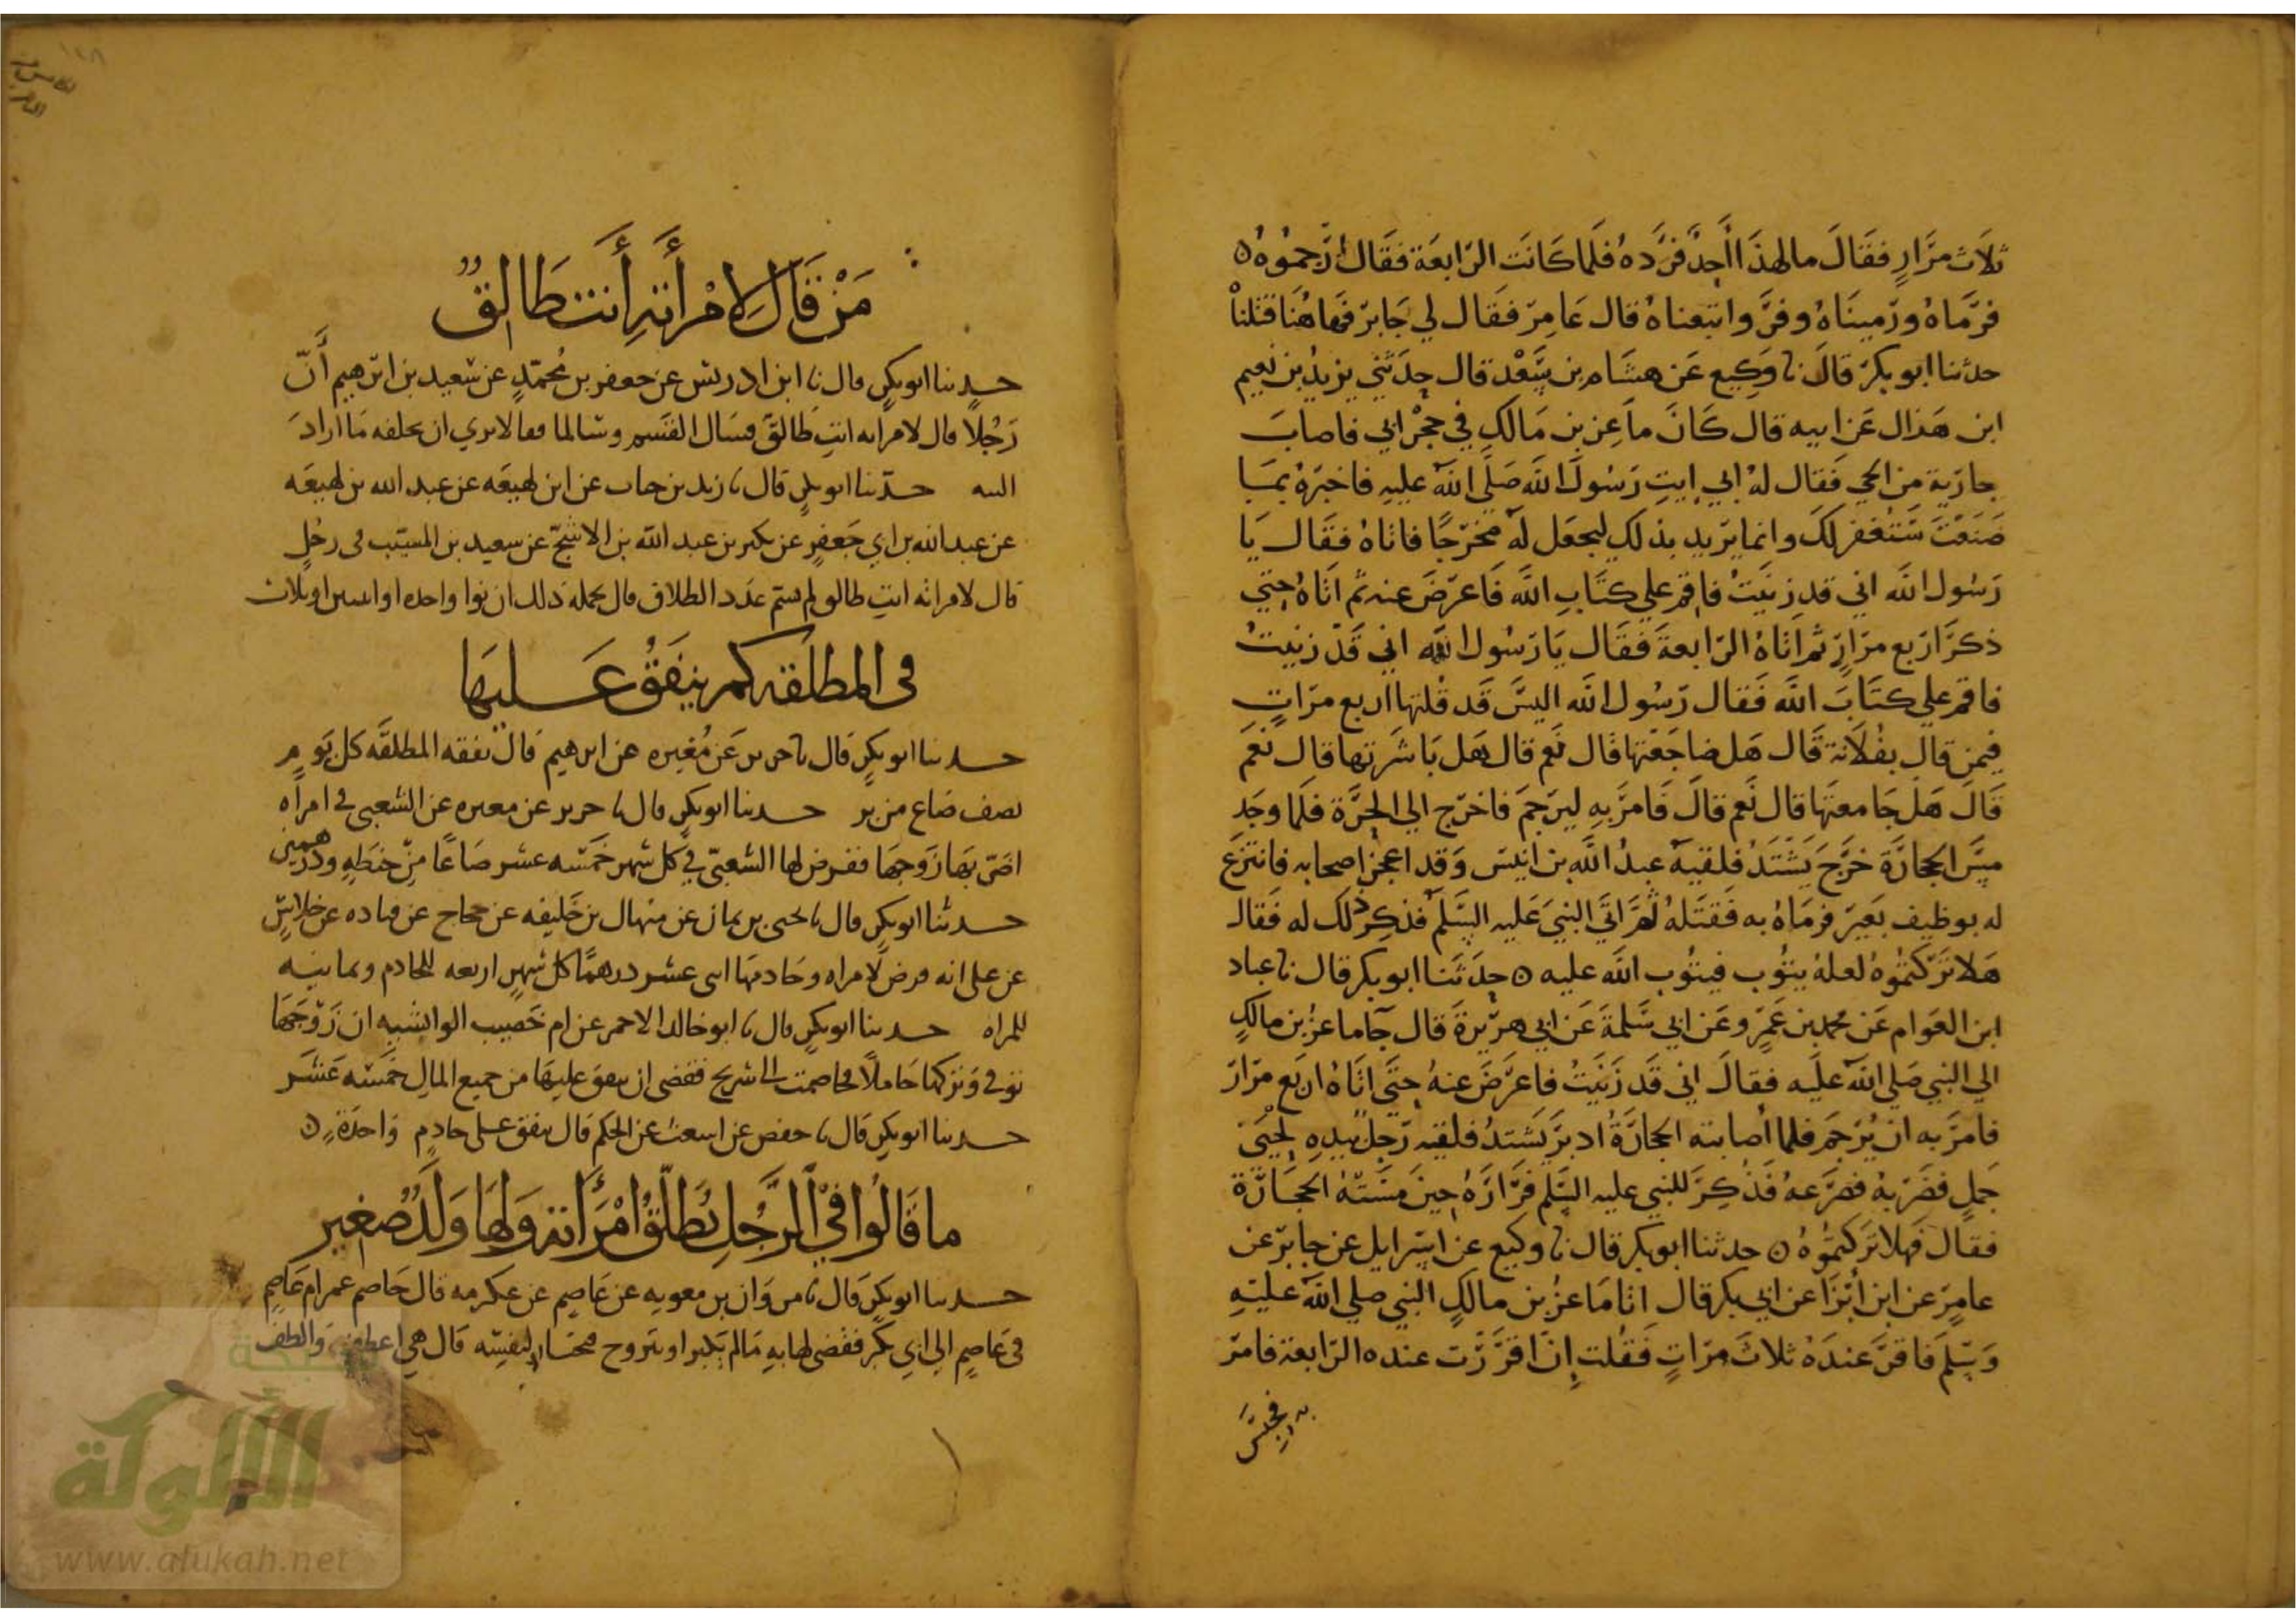 ثلاث مرار فقال ما لهذا احد فرده فلما كانت الرابعة فقال ارجموه ه
فرماه ورميناه وفر واتبعناه قال عامر فقال لي جابر فها هنا قتلنا
حدثنا ابو بكر قال نا وكيع عن هشام بن سعد قال حدثني يزيد بن نعيم
ابن هذال عن ابيه قال كان ماعز بن مالك في حجر ابي فاصاب
جارية من الحي فقال له ابي ايت رسول الله صلى الله عليه فاخبره بما
صنعت ستغفر لك وانما يريد بذلك ليجعل له مخرجا فاتاه فقال يا
رسول الله اني قد زنيت فاقم علي كتاب الله فاعرض عنه ثم اتاه حتي
ذكر اربع مرار ثم اتاه الرابعة فقال يا رسول الله اني قد زنيت
فاقم علي كتاب الله فقال رسول الله اليس قد قلتها اربع مرات
فيمن قال بفلانة قال هل ضاجعتها قال نعم قال هل باشرتها قال نعم
قال هل جامعتها قال نعم قال فامر به ليرجم فاخرج الي الحرة فلما وجد
مس الحجارة خرج يشتد فلقيه عبد الله بن انيس وقد اعجز اصحابه فانتزع
له بوظيف بعير فرماه به فقتله ثم اتي النبي عليه السلم فذكر ذلك له فقال
هلا تركتموه لعله يتوب فيتوب الله عليه ه حدثنا ابو بكر قال نا عباد
ابن العوام عن محمد بن عمر وعن ابي سلمة عن ابي هريرة قال جآ ماعز بن مالك
الي النبي صلي الله عليه فقال اني قد زنيت فاعرض عنه حتي اتاه اربع مرار
فامر به ان يرجم فلما أصابته الحجارة ادبر يشتد فلقيه رجل بيده لحيي
جمل فضربه فصرعه فذكر للنبي عليه السلم فراره حين مسته الحجارة
فقال فهلا تركتموه ه حدثنا ابو بكر قال نا وكيع عن اسرايل عن جابر عن
عامر عن ابن أبزا عن ابي بكر قال اتا ماعز بن مالك النبي صلي الله عليه
وسلم فاقر عنده ثلاث مرات فقلت إن اقررت عنده الرابعة فامر
به فحبس
من قال لامرأته أنت طالق
حدثنا ابو بكر قال نا ابن ادريس عن جعفر بن محمد عن سعيد بن ابرهيم أن
رجلا قال لامراته انت طالق فسال القسم وسالما فقالا نري ان يحلفه ما اراد
البته حدثنا ابو بكر قال نا زيد بن حباب عن ابن لهيعه عن عبد الله بن لهيعه
عن عبد الله بن ابي جعفر عن بكير بن عبد الله بن الاشج عن سعيد بن المسيب في رجل
قال لامراته انت طالق ولم يسم عدد الطلاق قال يحمله ذلك ان نوا واحده او اثنين او ثلاث
في المطلقه كم ينفق عليها
حدثنا ابو بكر قال نا جرير عن مغيره عن ابرهيم قال نفقه المطلقه كل يوم
نصف صاع من بر حدثنا ابو بكر قال نا جرير عن مغيره عن الشعبي في امراه
اضر بها زوجها ففرض لها الشعبي في كل شهر خمسه عشر صاعا من حنطه ودرهمين
حدثنا ابو بكر قال نا يحيى بن يمان عن منهال بن خليفه عن حجاج عن قتاده عن خلاس
عن علي انه فرض لامراه وخادمها اثنى عشر درهما كل شهر اربعه للخادم وثمانيه
للمراه حدثنا ابو بكر قال نا ابو خالد الاحمر عن ام خصيب الوابشيه ان زوجها
توفي وتركها حاملا فخاصمت الى شريح فقضى ان ينفق عليها من جميع المال خمسه عشر
حدثنا ابو بكر قال نا حفص عن اشعث عن الحكم قال ينفق على خادم واحدة ه
ما قالوا في الرجل يطلق امرأته ولها ولد صغير
حدثنا ابو بكر قال نا مروان بن معويه عن عاصم عن عكرمه قال خاصم عمر ام عاصم
في عاصم الى ابي بكر فقضى لها به ما لم يكبر او يتزوج فيختار لنفسه قال هي اعطف والطف
الألوكة
www.alukah.net